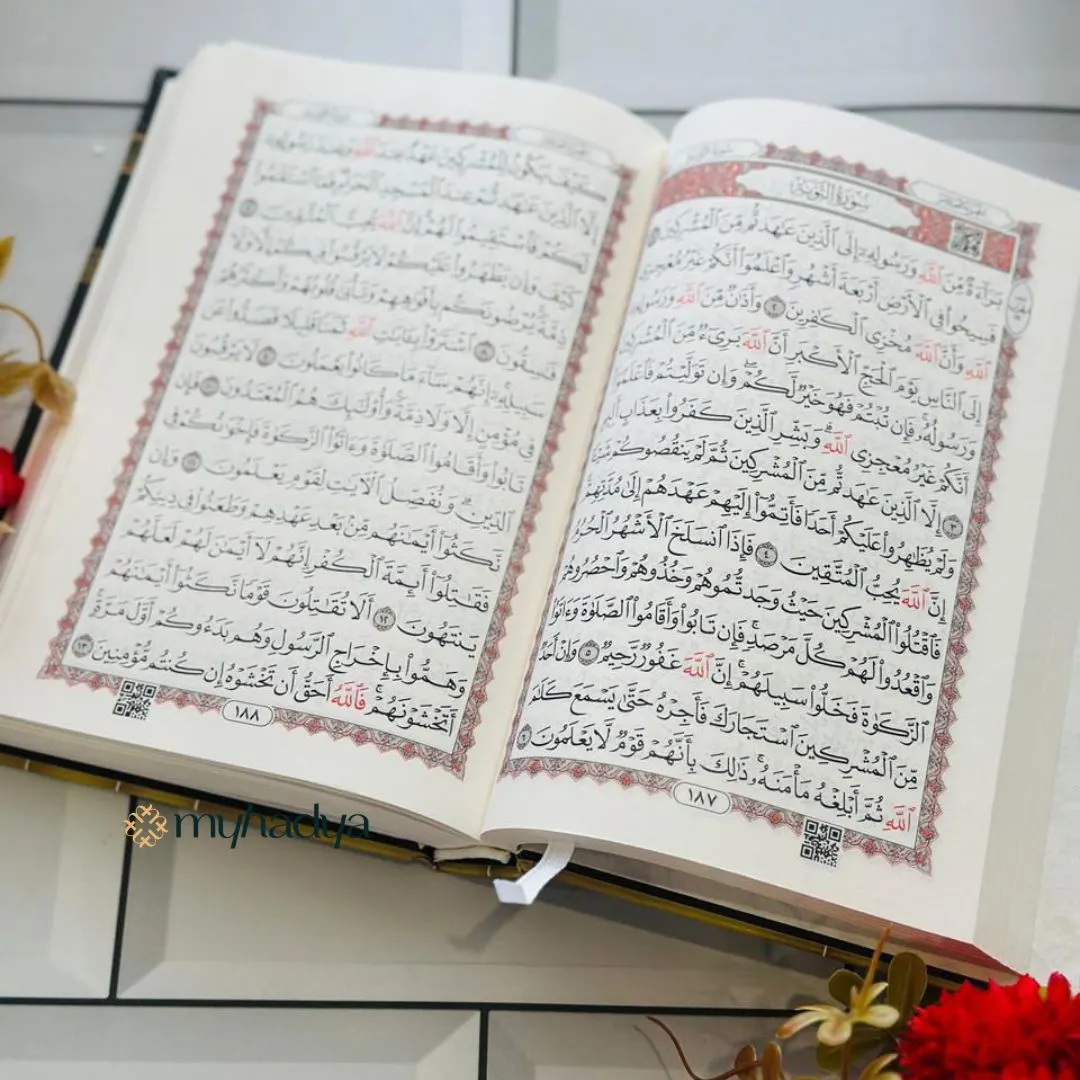 سُورَةُ التَّوْبَةِ
بَرَآءَةٌ مِّنَ ٱللَّهِ وَرَسُولِهِۦٓ إِلَى ٱلَّذِينَ عَـٰهَدتُّم مِّنَ ٱلْمُشْرِكِينَ ١
فَسِيحُوا۟ فِى ٱلْأَرْضِ أَرْبَعَةَ أَشْهُرٍ وَٱعْلَمُوٓا۟ أَنَّكُمْ غَيْرُ مُعْجِزِى
ٱللَّهِ وَأَنَّ ٱللَّهَ مُخْزِى ٱلْكَـٰفِرِينَ ٢ وَأَذَٰنٌ مِّنَ ٱللَّهِ وَرَسُولِهِۦٓ
إِلَى ٱلنَّاسِ يَوْمَ ٱلْحَجِّ ٱلْأَكْبَرِ أَنَّ ٱللَّهَ بَرِىٓءٌ مِّنَ ٱلْمُشْرِكِينَ
وَرَسُولُهُۥ فَإِن تُبْتُمْ فَهُوَ خَيْرٌ لَّكُمْ وَإِن تَوَلَّيْتُمْ فَٱعْلَمُوٓا۟
أَنَّكُمْ غَيْرُ مُعْجِزِى ٱللَّهِ وَبَشِّرِ ٱلَّذِينَ كَفَرُوا۟ بِعَذَابٍ أَلِيمٍ
٣ إِلَّا ٱلَّذِينَ عَـٰهَدتُّم مِّنَ ٱلْمُشْرِكِينَ ثُمَّ لَمْ يَنقُصُوكُمْ شَيْـًٔا
وَلَمْ يُظَـٰهِرُوا۟ عَلَيْكُمْ أَحَدًا فَأَتِمُّوٓا۟ إِلَيْهِمْ عَهْدَهُمْ إِلَىٰ مُدَّتِهِمْ
إِنَّ ٱللَّهَ يُحِبُّ ٱلْمُتَّقِينَ ٤ فَإِذَا ٱنسَلَخَ ٱلْأَشْهُرُ ٱلْحُرُمُ
فَٱقْتُلُوا۟ ٱلْمُشْرِكِينَ حَيْثُ وَجَدتُّمُوهُمْ وَخُذُوهُمْ وَٱحْصُرُوهُمْ
وَٱقْعُدُوا۟ لَهُمْ كُلَّ مَرْصَدٍ فَإِن تَابُوا۟ وَأَقَامُوا۟ ٱلصَّلَوٰةَ وَءَاتَوُا۟
ٱلزَّكَوٰةَ فَخَلُّوا۟ سَبِيلَهُمْ إِنَّ ٱللَّهَ غَفُورٌ رَّحِيمٌ ٥ وَإِنْ أَحَدٌ
مِّنَ ٱلْمُشْرِكِينَ ٱسْتَجَارَكَ فَأَجِرْهُ حَتَّىٰ يَسْمَعَ كَلَـٰمَ
ٱللَّهِ ثُمَّ أَبْلِغْهُ مَأْمَنَهُۥ ذَٰلِكَ بِأَنَّهُمْ قَوْمٌ لَّا يَعْلَمُونَ ٦
١٨٧
كَيْفَ يَكُونُ لِلْمُشْرِكِينَ عَهْدٌ عِندَ ٱللَّهِ وَعِندَ رَسُولِهِۦٓ
إِلَّا ٱلَّذِينَ عَـٰهَدتُّمْ عِندَ ٱلْمَسْجِدِ ٱلْحَرَامِ فَمَا ٱسْتَقَـٰمُوا۟
لَكُمْ فَٱسْتَقِيمُوا۟ لَهُمْ إِنَّ ٱللَّهَ يُحِبُّ ٱلْمُتَّقِينَ ٧
كَيْفَ وَإِن يَظْهَرُوا۟ عَلَيْكُمْ لَا يَرْقُبُوا۟ فِيكُمْ إِلًّا وَلَا
ذِمَّةً يُرْضُونَكُم بِأَفْوَٰهِهِمْ وَتَأْبَىٰ قُلُوبُهُمْ وَأَكْثَرُهُمْ
فَـٰسِقُونَ ٨ ٱشْتَرَوْا۟ بِـَٔايَـٰتِ ٱللَّهِ ثَمَنًا قَلِيلًا فَصَدُّوا۟ عَن
سَبِيلِهِۦٓ إِنَّهُمْ سَآءَ مَا كَانُوا۟ يَعْمَلُونَ ٩ لَا يَرْقُبُونَ
فِى مُؤْمِنٍ إِلًّا وَلَا ذِمَّةً وَأُو۟لَـٰٓئِكَ هُمُ ٱلْمُعْتَدُونَ ١٠ فَإِن
تَابُوا۟ وَأَقَامُوا۟ ٱلصَّلَوٰةَ وَءَاتَوُا۟ ٱلزَّكَوٰةَ فَإِخْوَٰنُكُمْ فِى
ٱلدِّينِ وَنُفَصِّلُ ٱلْـَٔايَـٰتِ لِقَوْمٍ يَعْلَمُونَ ١١ وَإِن
نَّكَثُوٓا۟ أَيْمَـٰنَهُم مِّنۢ بَعْدِ عَهْدِهِمْ وَطَعَنُوا۟ فِى دِينِكُمْ
فَقَـٰتِلُوٓا۟ أَئِمَّةَ ٱلْكُفْرِ إِنَّهُمْ لَآ أَيْمَـٰنَ لَهُمْ لَعَلَّهُمْ
يَنتَهُونَ ١٢ أَلَا تُقَـٰتِلُونَ قَوْمًا نَّكَثُوٓا۟ أَيْمَـٰنَهُمْ
وَهَمُّوا۟ بِإِخْرَاجِ ٱلرَّسُولِ وَهُم بَدَءُوكُمْ أَوَّلَ مَرَّةٍ
أَتَخْشَوْنَهُمْ فَٱللَّهُ أَحَقُّ أَن تَخْشَوْهُ إِن كُنتُم مُّؤْمِنِينَ ١٣
١٨٨
myhadya